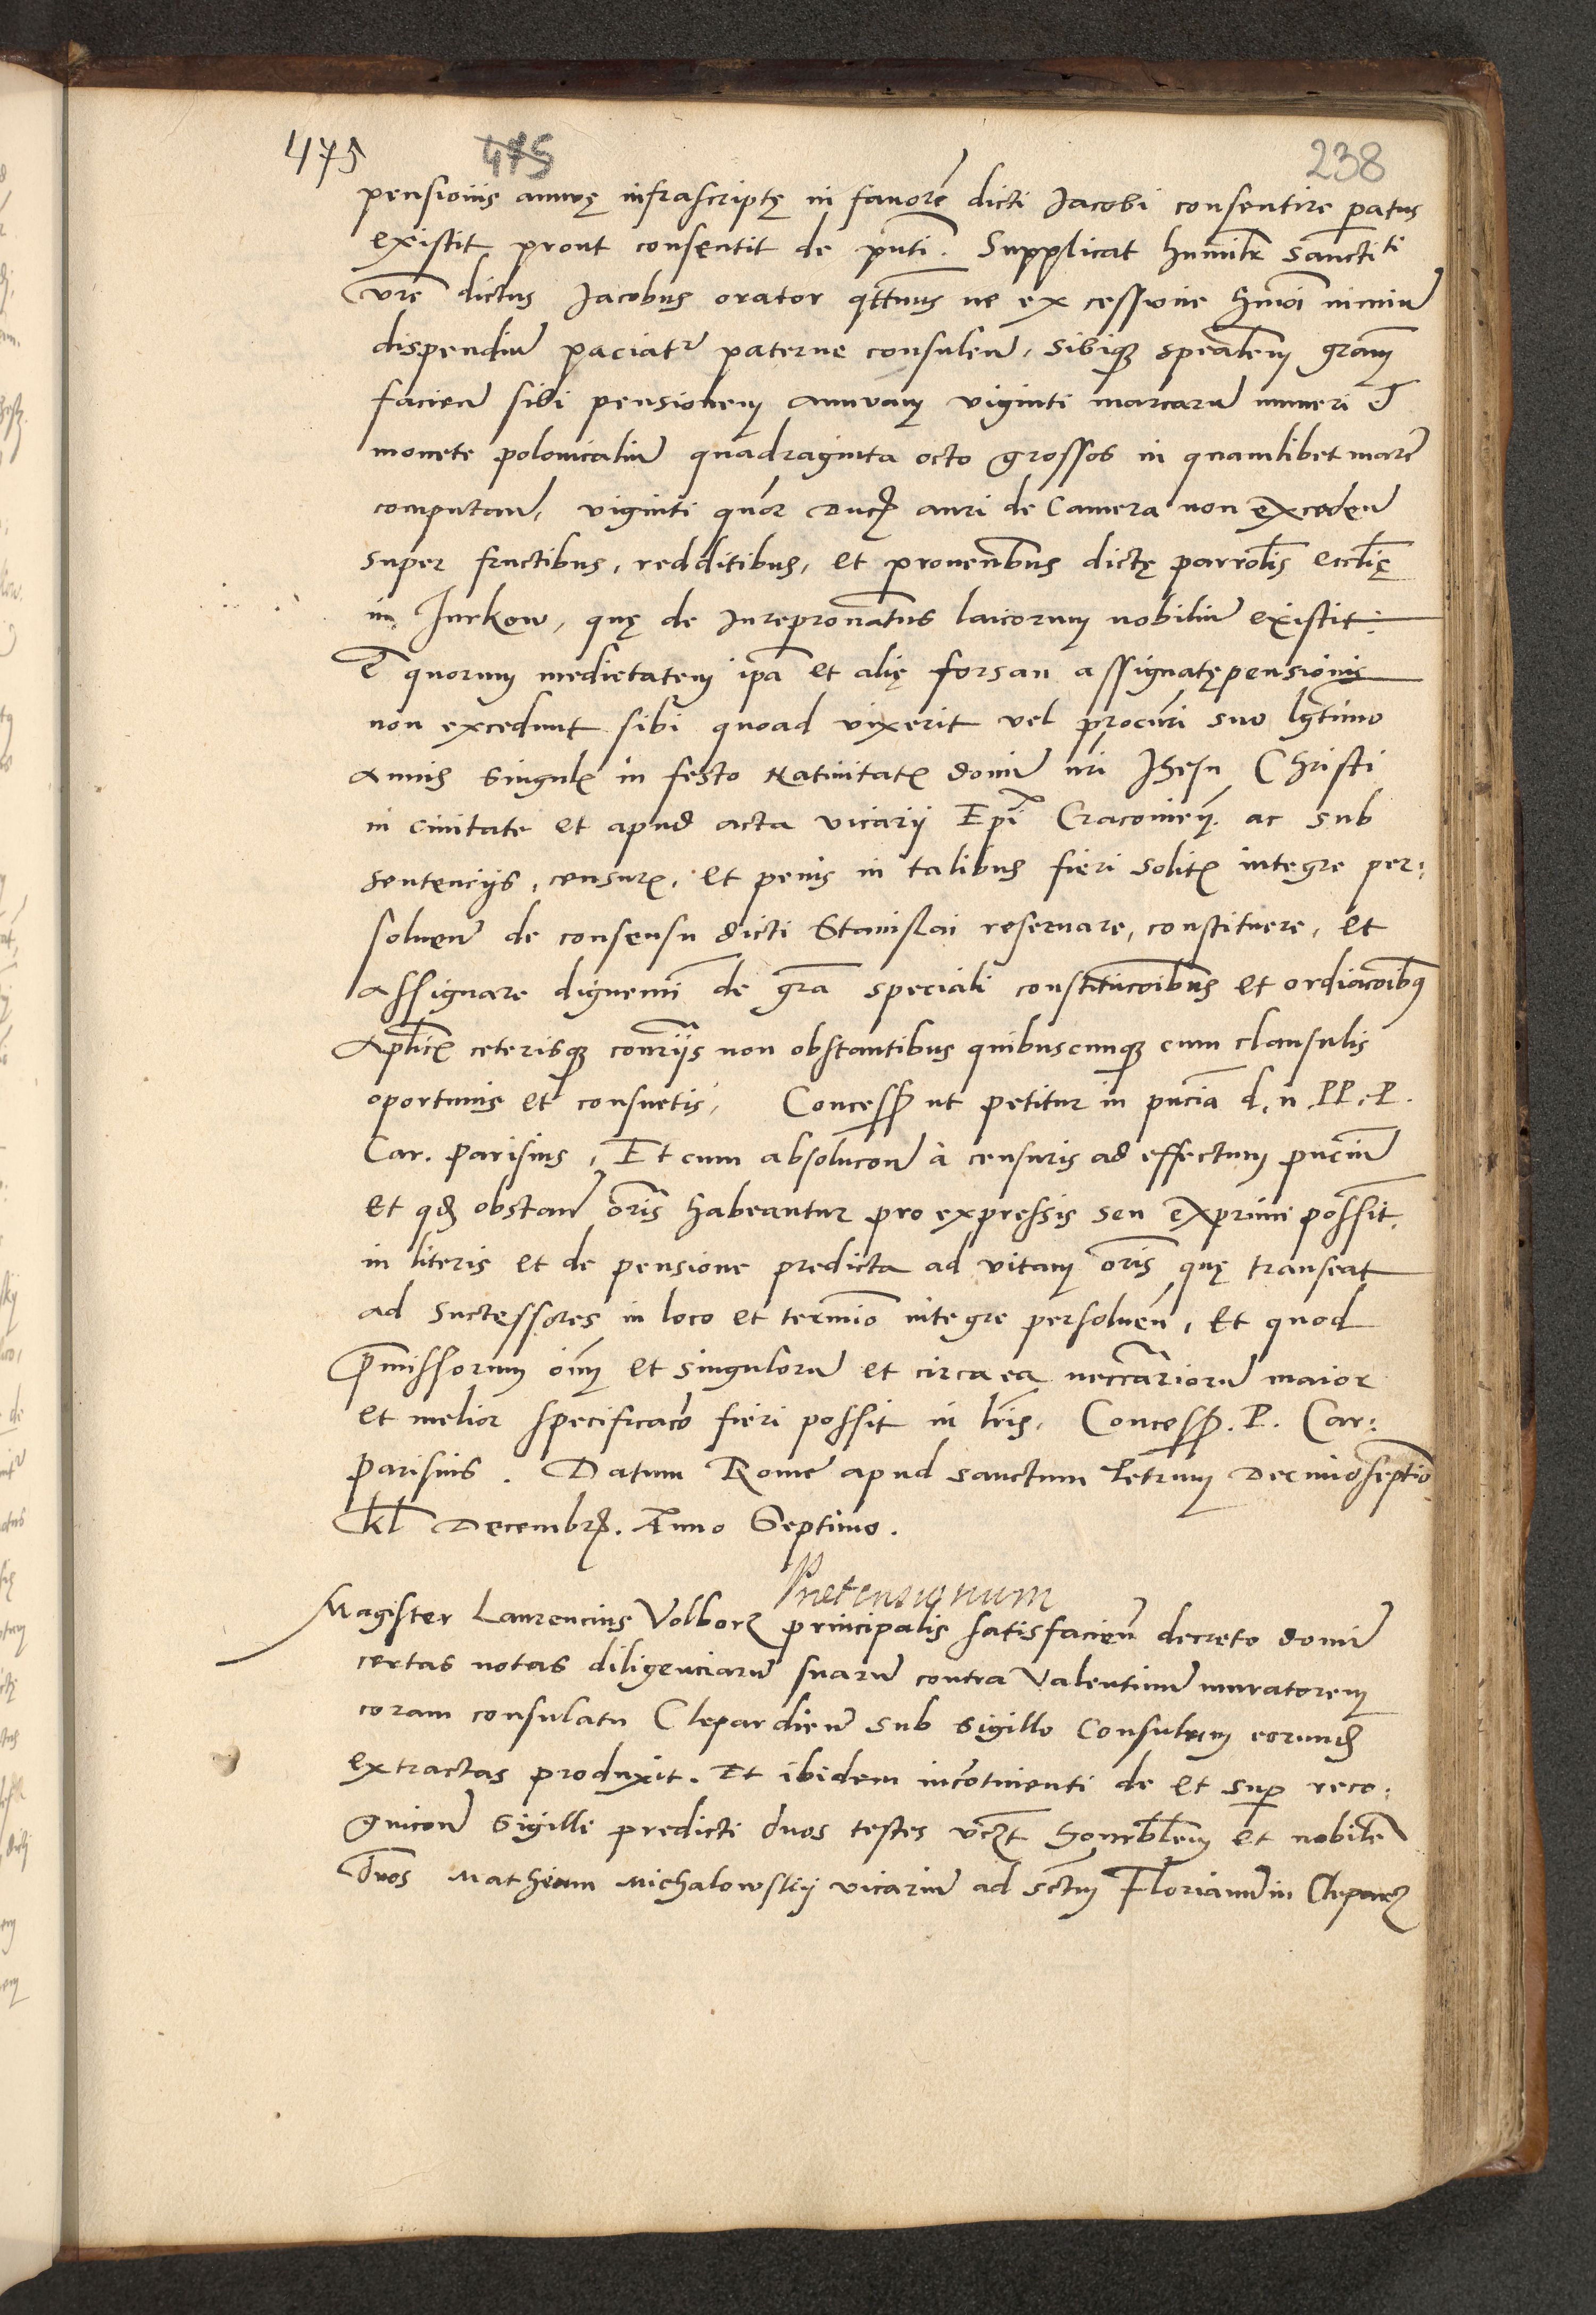 475 475 238
pensionis annuę infrascriptę in fauorē dicti Jacobi consentire paratus
existit prout consentit de pñti. Supplicat humilr̃ sanctiti
vr̃e dictus Jacobus orator qtenus ne ex cessione hmõi nimiũ
dispendiũ paciatr paterne consuleñ, sibiq; speãlem grãm
facieñ sibi pensionem annuam viginti marcarũ numeri et
monete polonicaliũ quadraginta octo grossos in quamlibet marc̃
computañ, viginti quõr Duc̃ auri de Camera non excedeñ
super fructibus, redditibus, et prouentibus dictę parrolis eccliẽ
in Jurkow, quę de Jurepronatus laicorum nobiliũ existit:
Et quorum medietatem ipã et alię forsan assignatę pensionis
non excedunt sibi quoad vixerit vel procuri suo lgtimo
annis singul̃ in festo Natiuitat̃ domi nri Jhesu Christi
in ciuitate et apud acta vicarij Epĩ Cracouieñ. ac sub
sentencijs, censur̃, et penis in talibus fieri solit̃ integre per:
solueñ de consensu dicti Stanislai reseruare, constituere, et
assignare dignemĩ de grã speciali constitucõibus et ordiacõibq
Aplic̃ ceterisq; contrijs non obstantibus quibuscunq; cum clausulis
oportunis et consuetis, Concess̃ ut petitur in pñcia d, n, PP, P.
Car. Parisius, Et cum absolucoñ à censuris ad effectum pñciũ
et qd̃ obstañ õris habeantur pro expressis seu exprimi possit.
in literis et de pensione predicta ad vitam õris quę transeat
ad successores in loco et termiõ integre persolueñ, Et quod
Premissorum õim et singulorũ et circa ea neccãriorũ maior
et melior specificacõ fieri possit in lr̃is, Concess̃. P. Car:
parisius. Datum Rome apud sanctum Petrum Decimoseptiõ
kl Decembr̃. Anno Septimo.
Pretensignum
Magister Laurencius Volborz principalis satisfacieñ decreto domi
certas notas diligenciarũ suarũ contra Valentinũ muratorem
coram consulatu Clepardieñ sub sigillo Consulum eorund̃
extractas produxit. Et ibidem incõtinenti de et sup̃ reco:
gnicoñ sigilli predicti duos testes vcz̃t honrblem et nobilẽ
dños Matheum Michalowskij vicariũ ad sctm̃ Florianũ in Cleparz